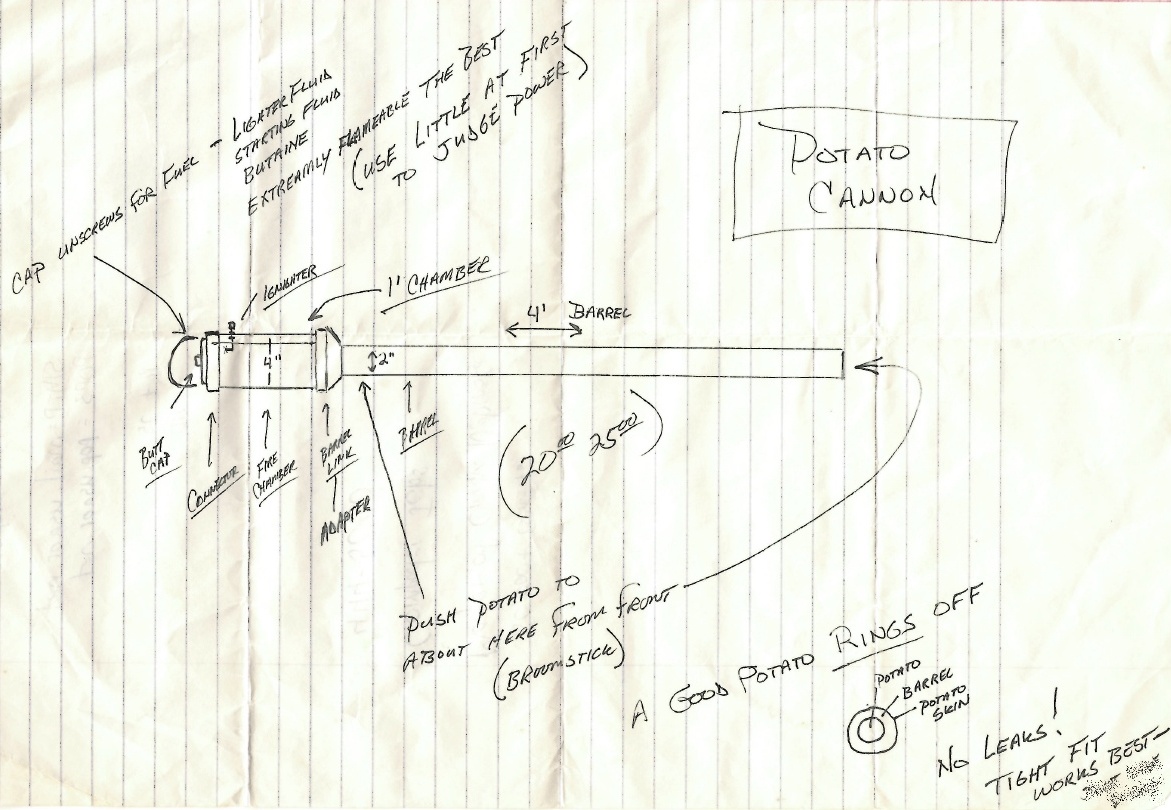 POTATO
CANNON
CAP UNSCREWS FOR FUEL - LIGHTER FLUID
STARTING FLUID
BUTAINE
EXTREAMLY FLAMEABLE THE BEST
(USE LITTLE AT FIRST
TO JUDGE POWER)
IGNIGHTER
1' CHAMBER
4' BARREL
4"
2"
BUTT
CAP
CONNECTOR
FIRE
CHAMBER
BARREL
LINK
ADAPTER
BARREL
(20.00 25.00)
PUSH POTATO TO
ABOUT HERE FROM FRONT
(BROOMSTICK)
A GOOD POTATO RINGS OFF
POTATO
BARREL
POTATO
SKIN
NO LEAKS!
TIGHT FIT
WORKS BEST-